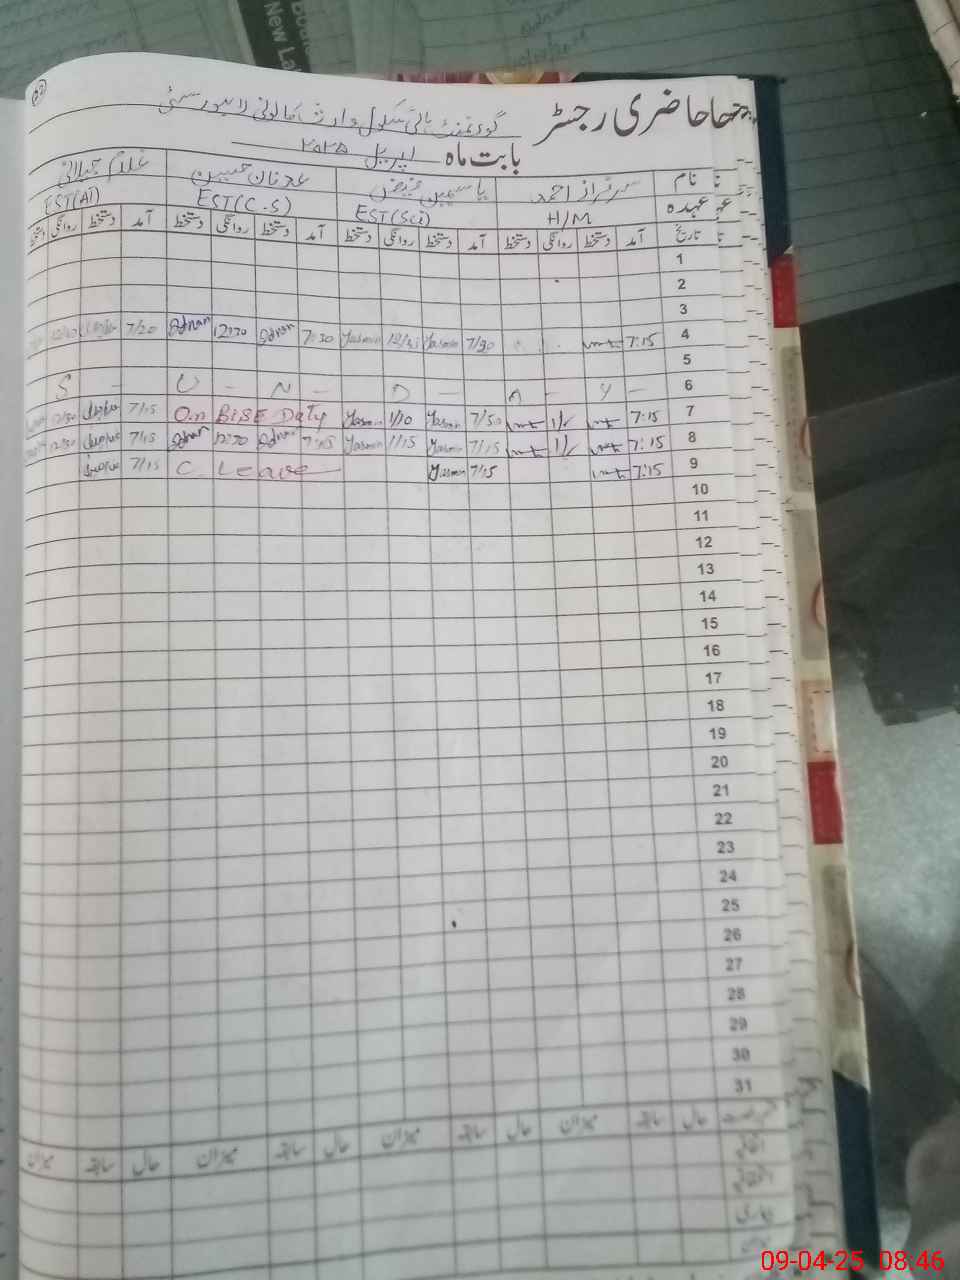 حاضری رجسٹر
گورنمنٹ ہائی سکول وارث کالونی لاہور سٹی
بابت ماہ اپریل ۲۰۲۵
نام سرفراز احمد یاسمین عدنان حسین غلام جیلانی
عہدہ H/M EST(Sci) EST(C.S) EST(AT)
تاریخ آمد دستخط روانگی دستخط آمد دستخط روانگی دستخط آمد دستخط روانگی دستخط آمد دستخط روانگی دستخط
1
2
3
4 7:15 7/30 Yasmin Yasmin 7:30 Adnan 12:30 Adnan 7/20
5
6 S - U - N - D - A - Y -
7 7:15 1/ 7/50 Yasmin 1/10 Yasmin On BISE Duty 7/15
8 7:15 1/ 7/15 Yasmin 1/15 Yasmin 7:15 Adnan 12:30 Adnan 7/15
9 7:15 7/15 Yasmin C. Leave 7/15
10
11
12
13
14
15
16
17
18
19
20
21
22
23
24
25
26
27
28
29
30
31
حال سابقہ میزان حال سابقہ میزان حال سابقہ میزان حال سابقہ میزان
اتفاقیہ
بیماری
09-04-25 08:46